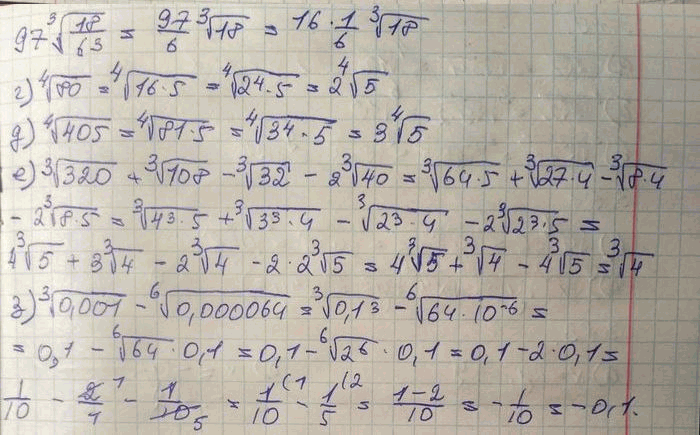 97 ∛(18/6³) = 97/6 ∛18 = 16·1/6 ∛18
г) ∜80 = ∜(16·5) = ∜(2⁴·5) = 2∜5
д) ∜405 = ∜(81·5) = ∜(3⁴·5) = 3∜5
е) ∛320 + ∛108 - ∛32 - 2∛40 = ∛(64·5) + ∛(27·4) - ∛(8·4)
- 2∛(8·5) = ∛(4³·5) + ∛(3³·4) - ∛(2³·4) - 2∛(2³·5) =
4∛5 + 3∛4 - 2∛4 - 2·2∛5 = 4∛5 + ∛4 - 4∛5 = ∛4
з) ∛0,001 - ⁶√0,000064 = ∛0,1³ - ⁶√(64·10⁻⁶) =
= 0,1 - ⁶√64 · 0,1 = 0,1 - ⁶√2⁶ · 0,1 = 0,1 - 2·0,1 =
1/10 - 2¹/1 - 1/10₅ = 1/10⁽¹ - 1/5⁽² = (1-2)/10 = -1/10 = -0,1.